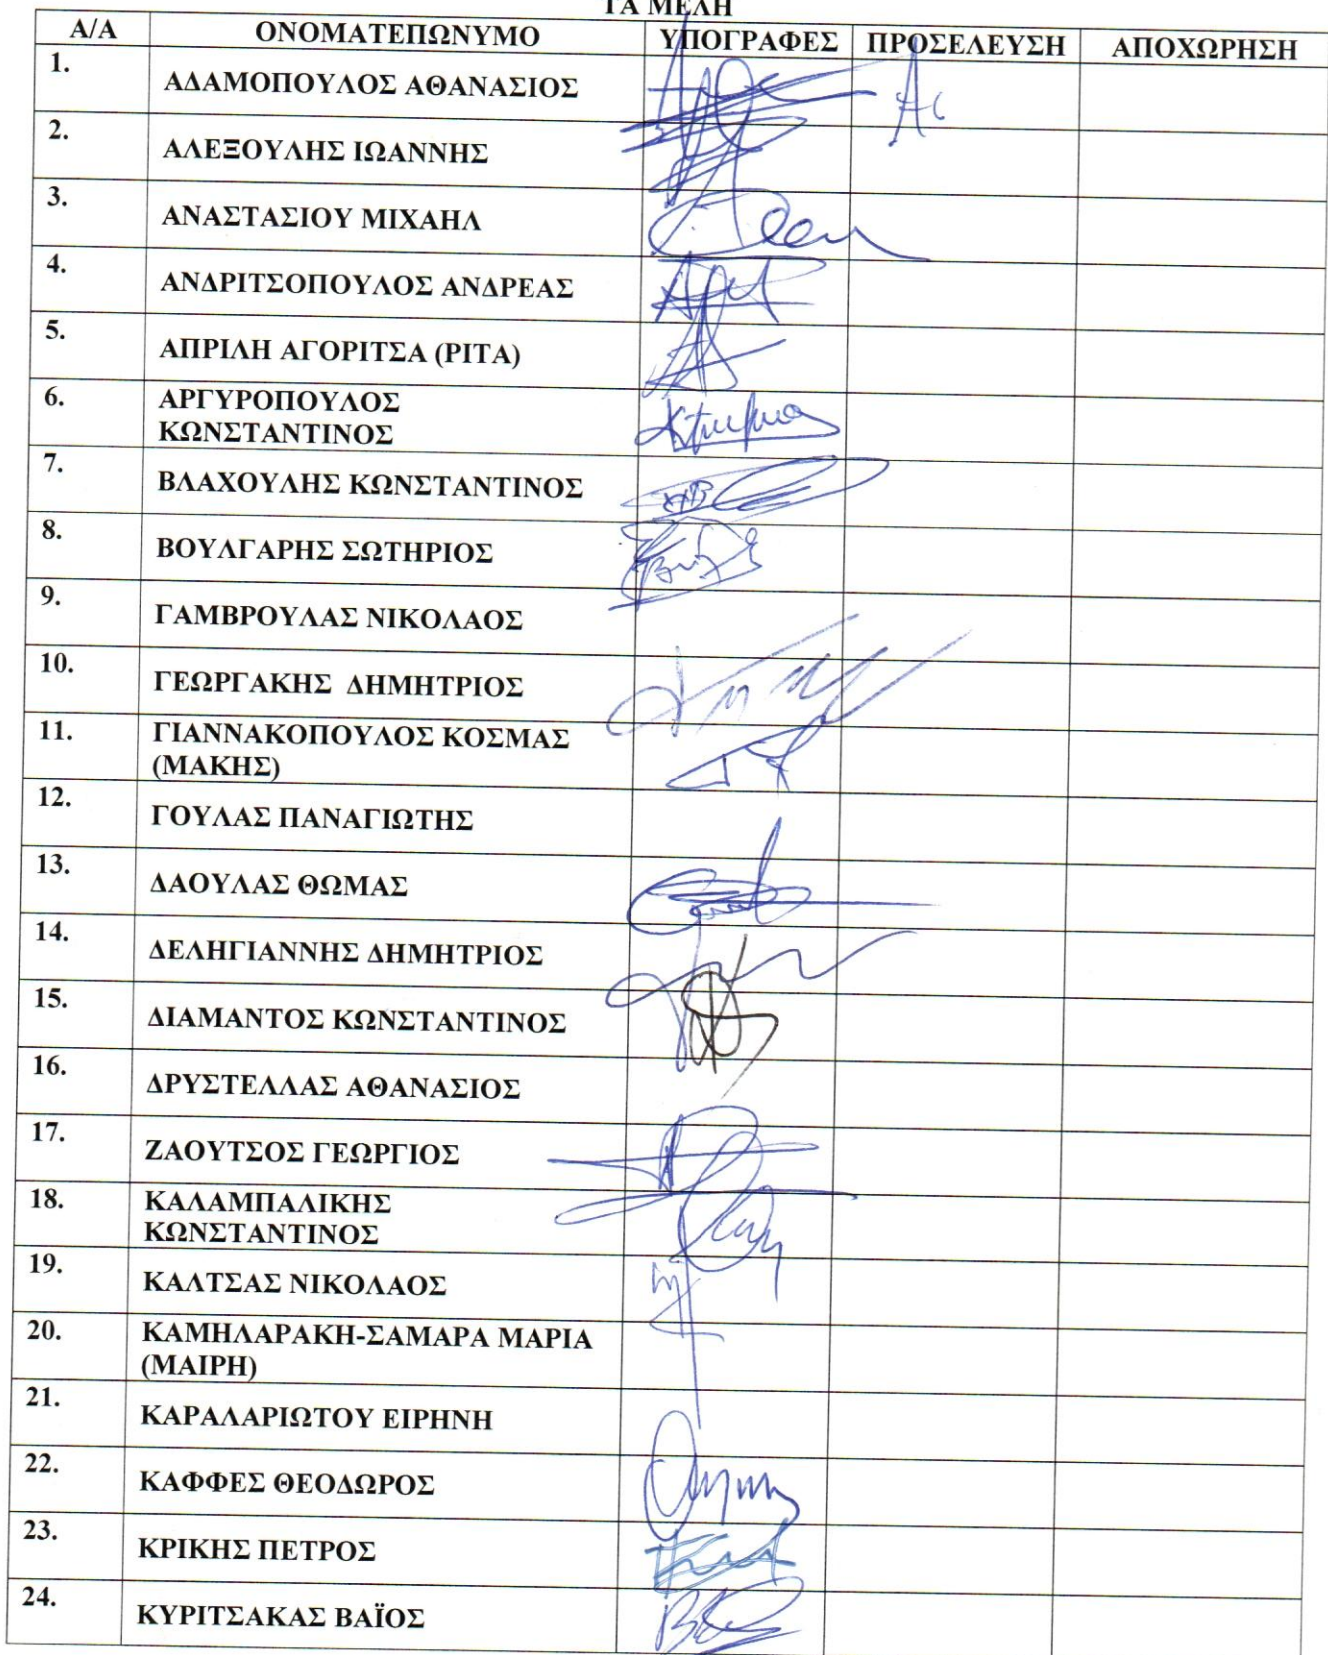 ΤΑ ΜΕΛΗ
Α/Α ΟΝΟΜΑΤΕΠΩΝΥΜΟ ΥΠΟΓΡΑΦΕΣ ΠΡΟΣΕΛΕΥΣΗ ΑΠΟΧΩΡΗΣΗ
1. ΑΔΑΜΟΠΟΥΛΟΣ ΑΘΑΝΑΣΙΟΣ
2. ΑΛΕΞΟΥΛΗΣ ΙΩΑΝΝΗΣ
3. ΑΝΑΣΤΑΣΙΟΥ ΜΙΧΑΗΛ
4. ΑΝΔΡΙΤΣΟΠΟΥΛΟΣ ΑΝΔΡΕΑΣ
5. ΑΠΡΙΛΗ ΑΓΟΡΙΤΣΑ (ΡΙΤΑ)
6. ΑΡΓΥΡΟΠΟΥΛΟΣ
ΚΩΝΣΤΑΝΤΙΝΟΣ
7. ΒΛΑΧΟΥΛΗΣ ΚΩΝΣΤΑΝΤΙΝΟΣ
8. ΒΟΥΛΓΑΡΗΣ ΣΩΤΗΡΙΟΣ
9. ΓΑΜΒΡΟΥΛΑΣ ΝΙΚΟΛΑΟΣ
10. ΓΕΩΡΓΑΚΗΣ ΔΗΜΗΤΡΙΟΣ
11. ΓΙΑΝΝΑΚΟΠΟΥΛΟΣ ΚΟΣΜΑΣ
(ΜΑΚΗΣ)
12. ΓΟΥΛΑΣ ΠΑΝΑΓΙΩΤΗΣ
13. ΔΑΟΥΛΑΣ ΘΩΜΑΣ
14. ΔΕΛΗΓΙΑΝΝΗΣ ΔΗΜΗΤΡΙΟΣ
15. ΔΙΑΜΑΝΤΟΣ ΚΩΝΣΤΑΝΤΙΝΟΣ
16. ΔΡΥΣΤΕΛΛΑΣ ΑΘΑΝΑΣΙΟΣ
17. ΖΑΟΥΤΣΟΣ ΓΕΩΡΓΙΟΣ
18. ΚΑΛΑΜΠΑΛΙΚΗΣ
ΚΩΝΣΤΑΝΤΙΝΟΣ
19. ΚΑΛΤΣΑΣ ΝΙΚΟΛΑΟΣ
20. ΚΑΜΗΛΑΡΑΚΗ-ΣΑΜΑΡΑ ΜΑΡΙΑ
(ΜΑΙΡΗ)
21. ΚΑΡΑΛΑΡΙΩΤΟΥ ΕΙΡΗΝΗ
22. ΚΑΦΦΕΣ ΘΕΟΔΩΡΟΣ
23. ΚΡΙΚΗΣ ΠΕΤΡΟΣ
24. ΚΥΡΙΤΣΑΚΑΣ ΒΑΪΟΣ